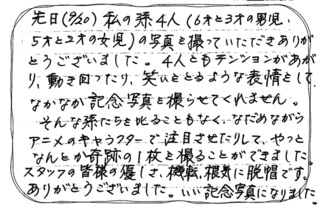 先日(9/20)私の孫4人(6才と3才の男児、
5才と2才の女児)の写真を撮っていただきありが
とうございました。4人ともテンションがあが
り、動き回ったり、笑いととるような表情をして
なかなか記念写真を撮らせてくれません。
そんな孫たちを叱ることもなく、なだめながら
アニメのキャラクターで注目させたりして、やっと
なんとか奇跡の1枚を撮ることができました。
スタッフの皆様の優しさ、機転、根気に脱帽です。
ありがとうございました。いい記念写真になりました。